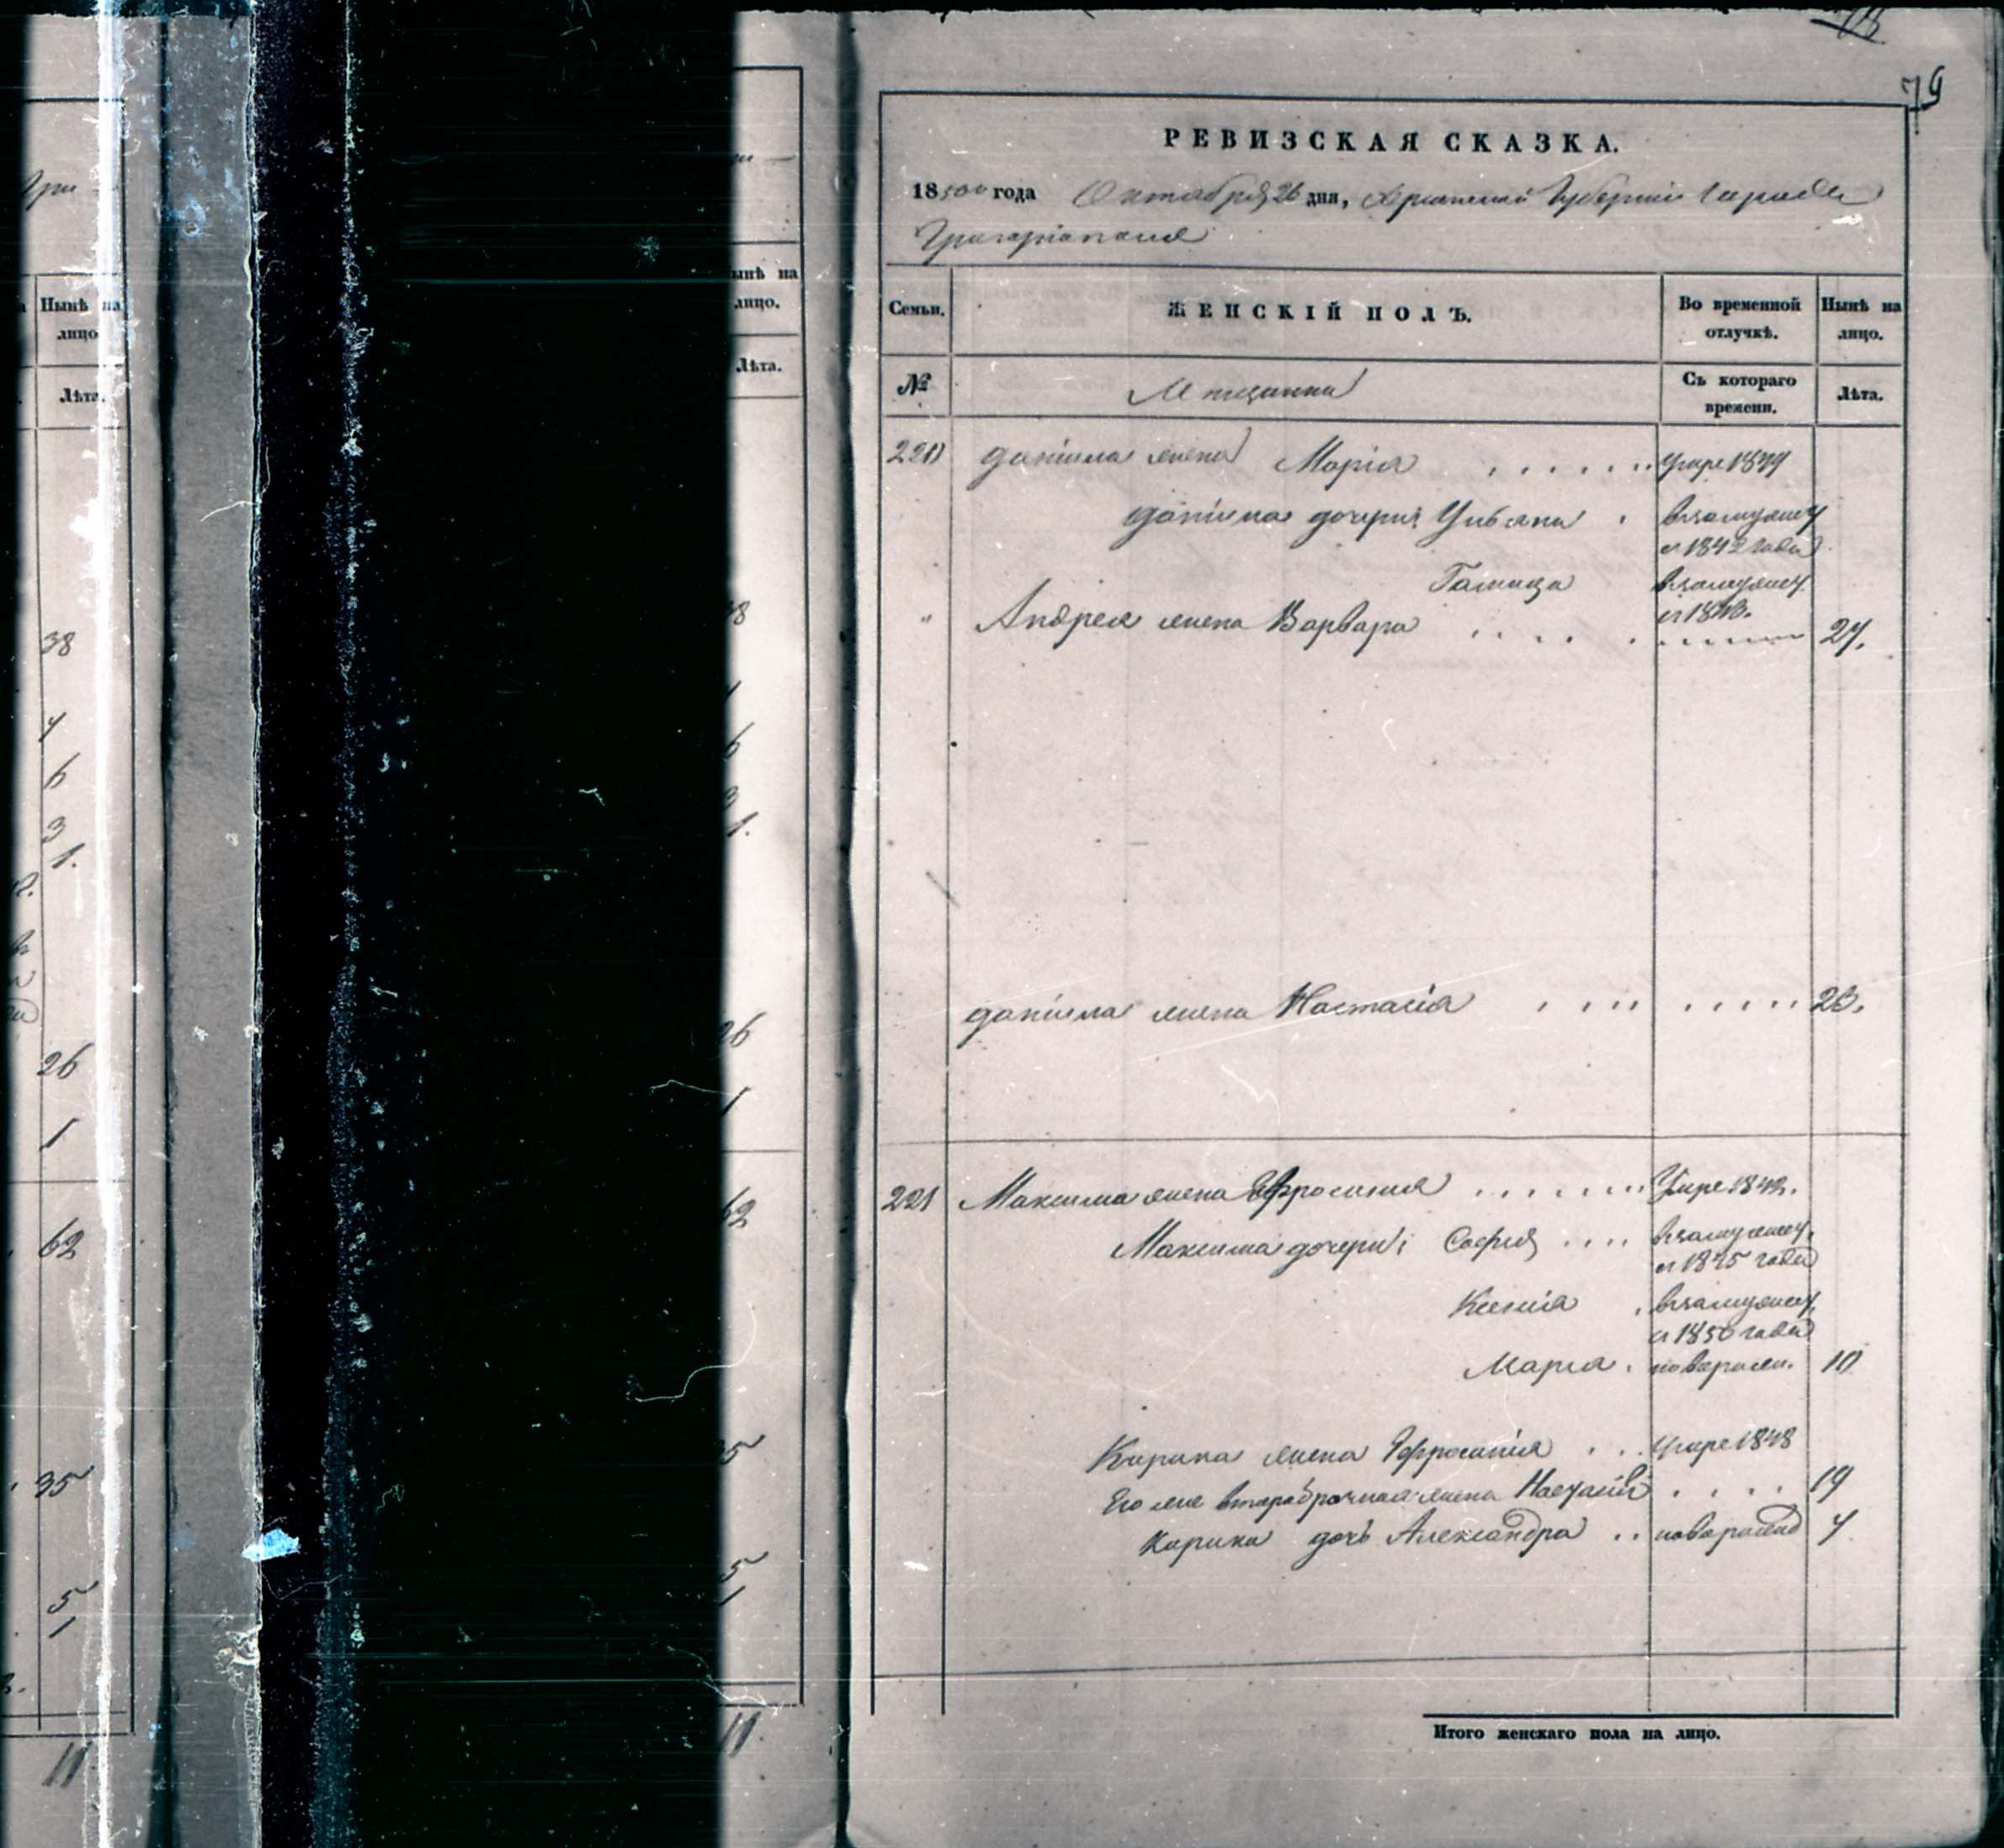 при
Нынѣ на
лицо.
Лѣта.
38
4
6
3
1.
26
1
62
35
5
1
11
нынѣ на
лицо.
Лѣта.
8
6
3
1.
26
1
62
5
5
1
11.
79
РЕВИЗСКАЯ СКАЗКА.
1850го года Октября 26 дня, Херсонской Губерніи Города
Григоріополя
Семьи. ЖЕНСКІЙ ПОЛЪ. Во временной отлучкѣ. Нынѣ на лицо.
№ Мещанки Съ котораго времени. Лѣта.
220 Даніила жена Марія умре
Даніила дочери Ульяна взамужес.
с 1842 года
взамужес.
" Андрея жена Варвара 27.
Даніила жена Настасія 23.
221 Максима жена Ефросинія Умре
Максима дочери: Софія взамужес.
с 1845 года
Ксенія взамужес.
с 1850 года
Марія новорожд. 10
Кирика жена Ефросинія умре 1848
Его же второбрачная жена Настасія 19
Кирика дочь Александра новорожд 4
Итого женскаго пола на лицо.